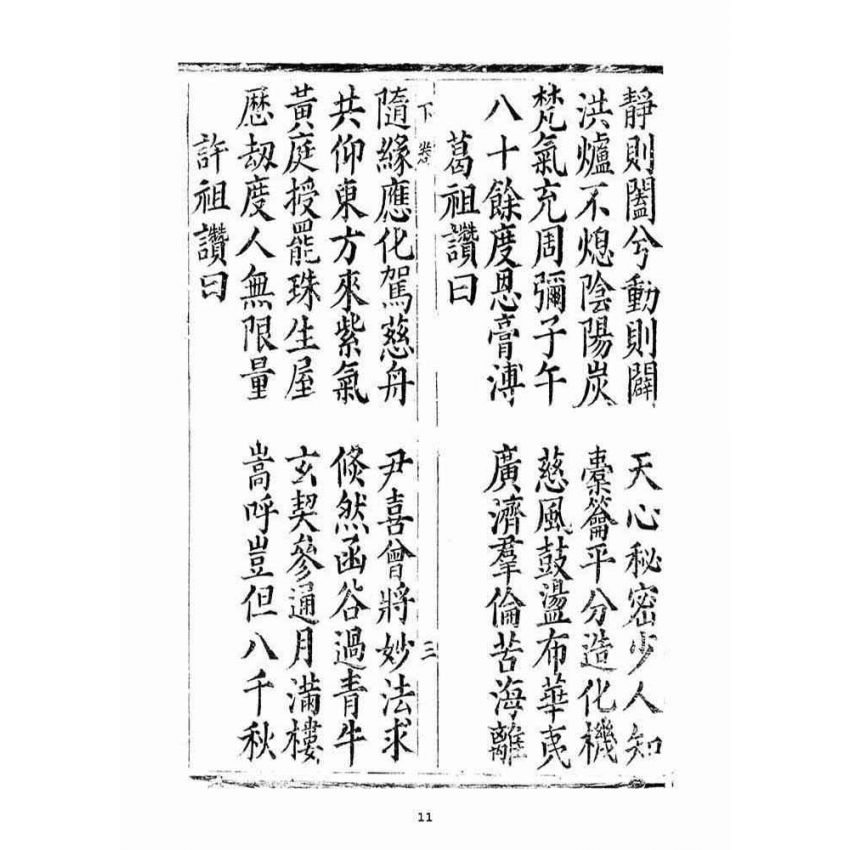 靜則闔兮動則闢　天心秘密少人知
洪爐不熄陰陽炭　橐籥平分造化機
梵氣充周彌子午　慈風鼓盪布華夷
八十餘度恩膏溥　廣濟羣倫苦海離
葛祖讚曰
下卷　三
隨緣應化駕慈舟　尹喜曾將妙法求
共仰東方來紫氣　倐然函谷過青牛
黃庭授罷珠生屋　玄契參通月滿樓
歷劫度人無限量　嵩呼豈但八千秋
許祖讚曰
11